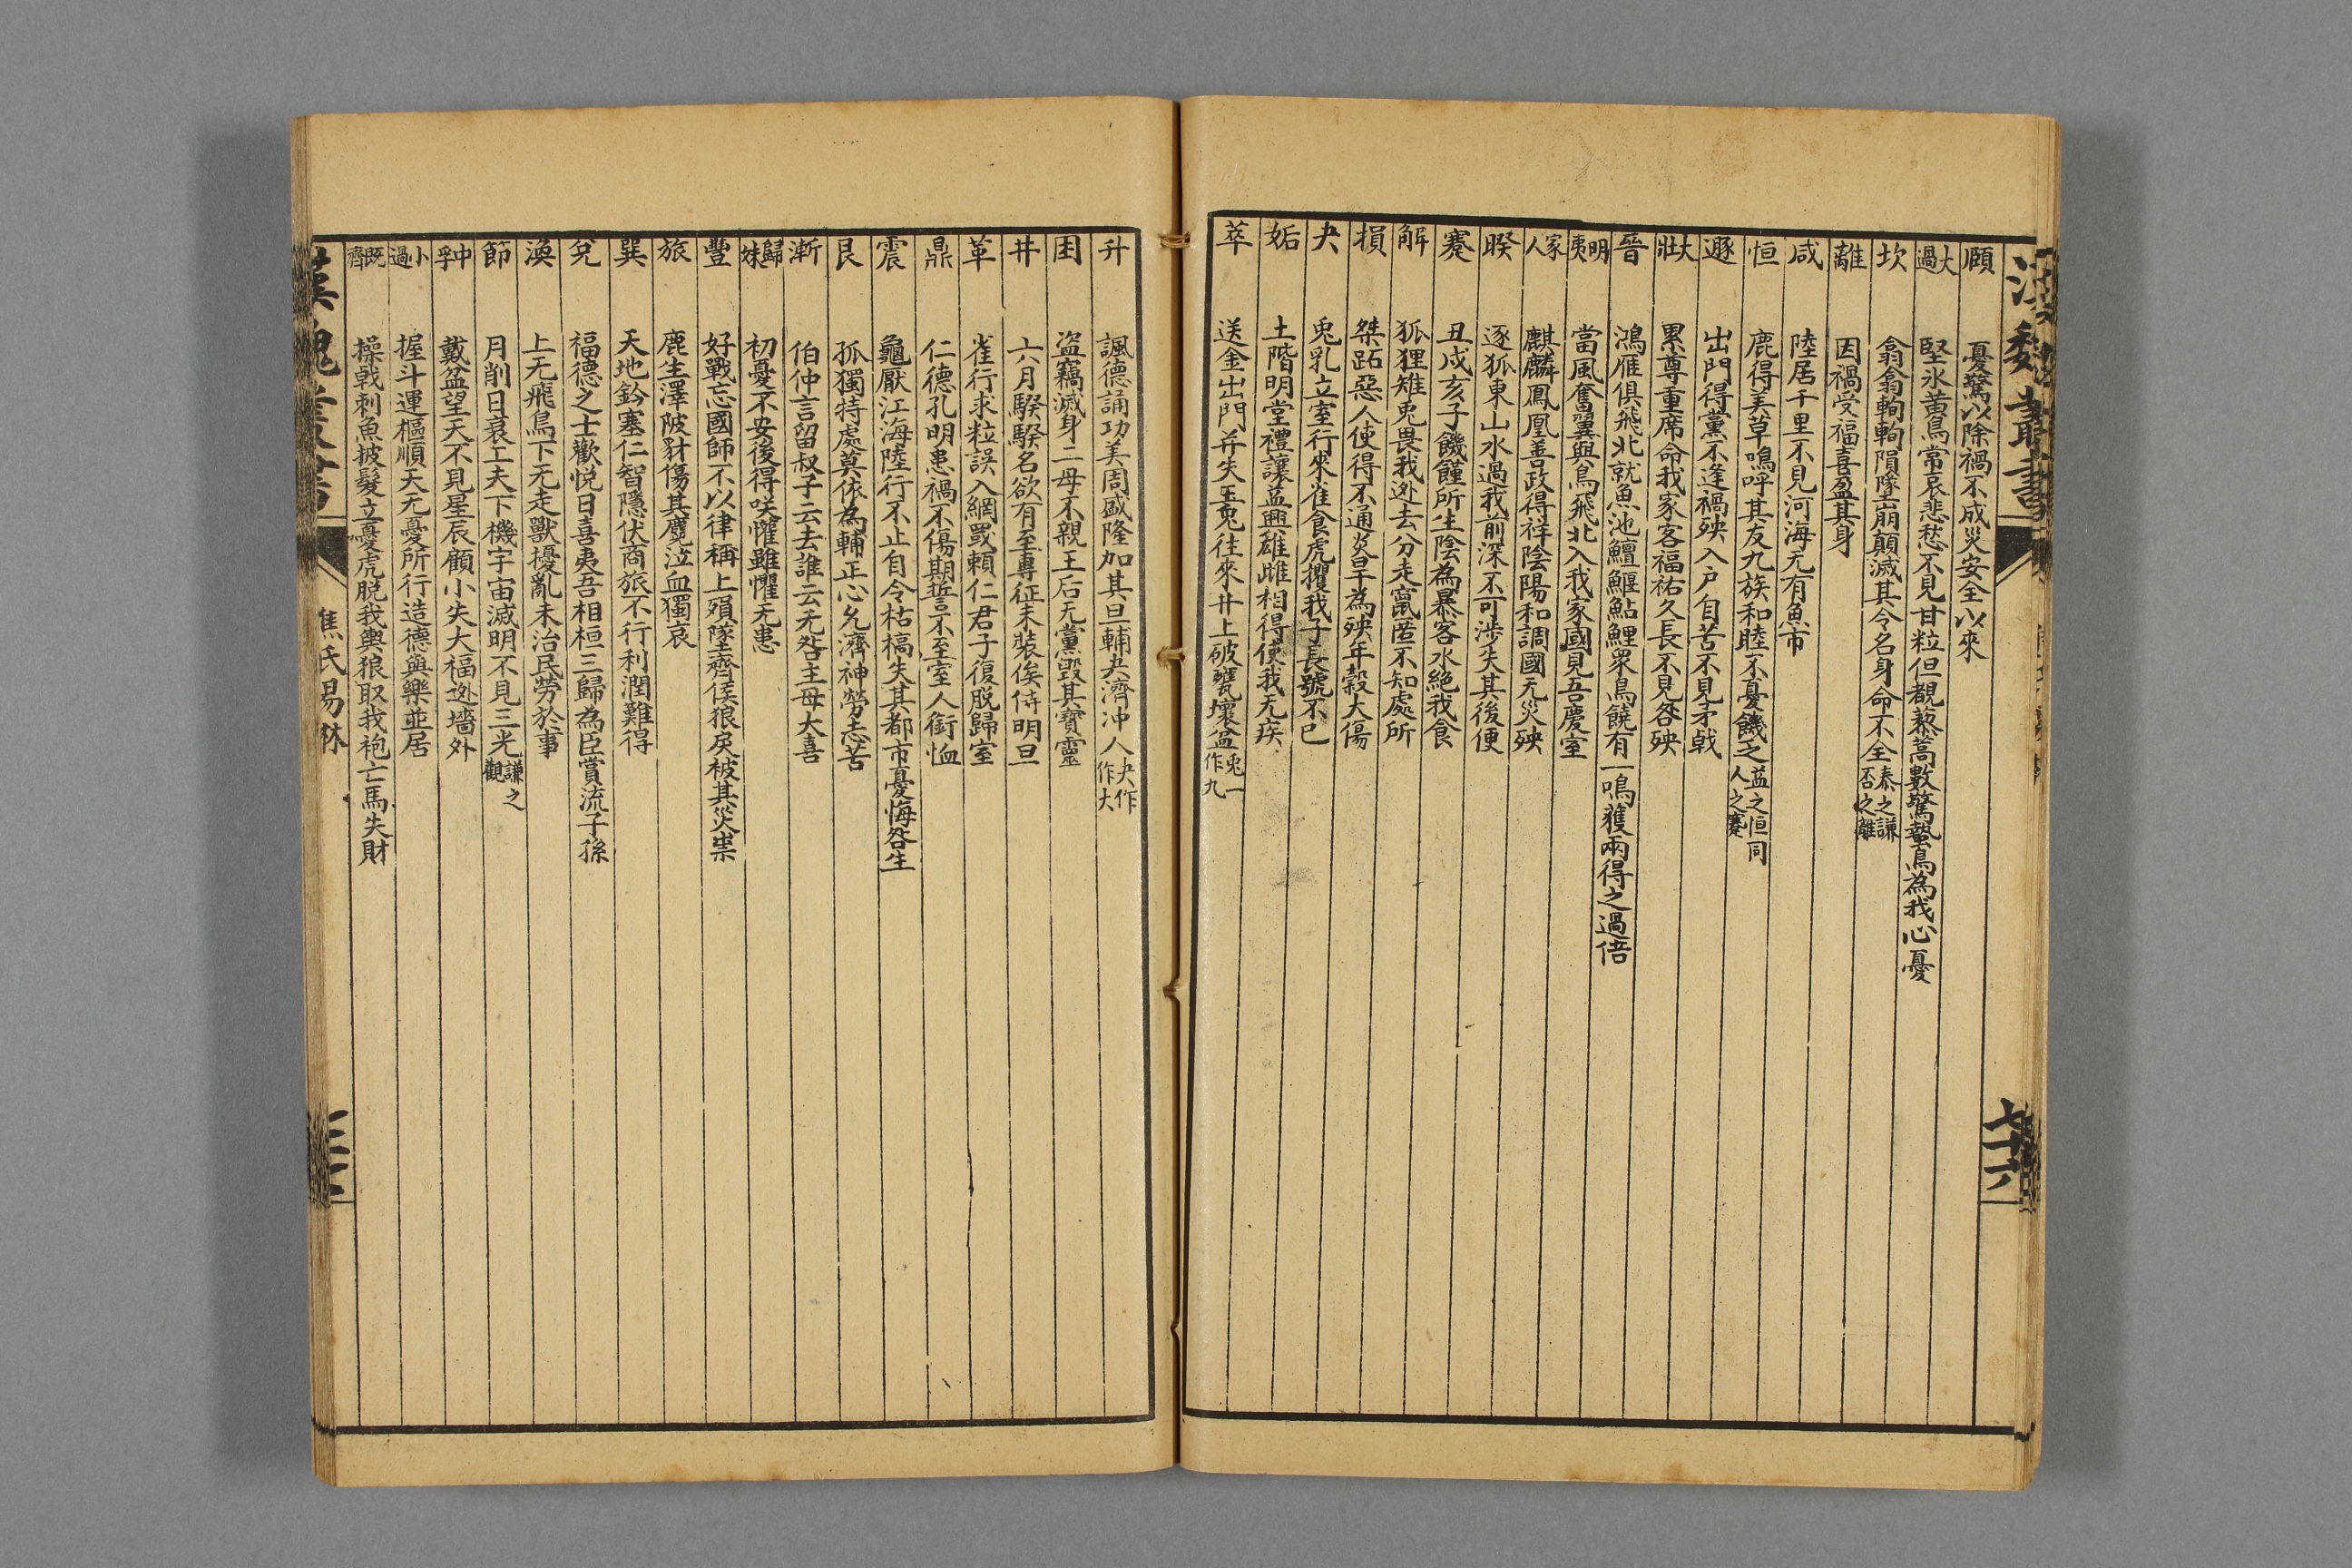 漢魏叢書
七十六
頤 憂驚以除禍不成災安全以來
大過 堅冰黃鳥常哀悲愁不見甘粒但觀藜蒿數驚蟄鳥為我心憂
坎 翕翕軥軥隕墜崩顛滅其令名身命不全泰之謙否之離
離 因禍受福喜盈其身
咸 陸居千里不見河海无有魚市
恒 鹿得美草鳴呼其友九族和睦不憂饑乏益之恒同人之蹇
遯 出門得黨不逢禍殃入戶自苦不見矛戟
大壯 累尊重席命我家客福祐久長不見咎殃
晉 鴻雁俱飛北就魚池鱣鰋鮎鯉眾鳥饒有一鳴獲兩得之過倍
明夷 當風奮翼與鳥飛北入我家國見吾慶室
家人 麒麟鳳凰善政得祥陰陽和調國无災殃
睽 逐狐東山水過我前深不可涉失其後便
蹇 丑戌亥子饑饉所生陰為暴客水絕我食
解 狐狸雉兎畏我逃去分走竄匿不知處所
損 桀跖惡人使得不通炎旱為殃年穀大傷
夬 兎乳立室行來雀食虎攫我子長號不已
姤 土階明堂禮讓益興雄雌相得使我无疾
萃 送金出門并失玉兎往來井上破甕壞盆兎一作九
升 諷德誦功美周盛隆加其旦輔夬濟冲人夬作作大
困 盜竊滅身二母不親王后无黨毀其寶靈
井 六月騤騤名欲有至專征未裝俟待明旦
革 雀行求粒誤入網罭賴仁君子復脫歸室
鼎 仁德孔明患禍不傷期誓不至室人銜恤
震 龜厭江海陸行不止自令枯槁失其都市憂悔咎生
艮 孤獨特處莫依為輔正心允濟神勞志苦
漸 伯仲言留叔子云去誰云无咎主母大喜
歸妹 初憂不安後得咲懽雖懼无患
豐 好戰忘國師不以律稱上殞墜齊侯狼戾被其災祟
旅 鹿生澤陂豺傷其麑泣血獨哀
巽 天地鈐塞仁智隱伏商旅不行利潤難得
兌 福德之士歡悅日喜夷吾相桓三歸為臣賞流子孫
渙 上无飛鳥下无走獸擾亂未治民勞於事
節 月削日衰工夫下機宇宙滅明不見三光謙之觀
中孚 戴盆望天不見星辰顧小失大福逃墻外
小過 握斗運樞順天无憂所行造德與樂並居
既濟 操戟刺魚披髮立憂虎脫我輿狼取我袍亡馬失財
漢魏叢書
焦氏易林